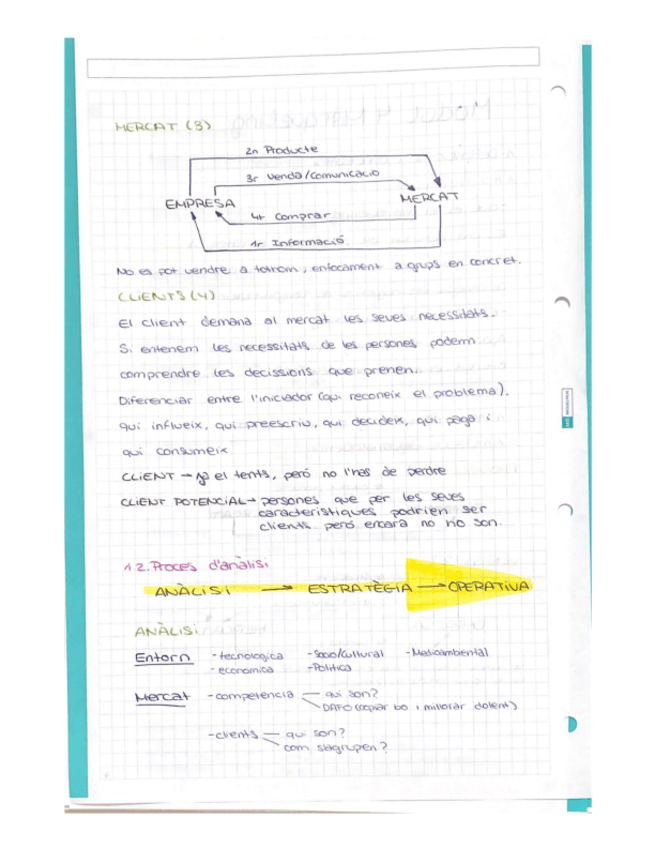 MERCAT (3)
2n Producte
3r Venda/Comunicació
EMPRESA
MERCAT
4t Comprar
1r Informació
No es pot vendre a tothom, enfocament a grups en concret.
CLIENTS (4)
El client demana al mercat les seves necessitats.
Si entenem les necessitats de les persones podem
comprendre les decissions que prenen.
Diferenciar entre l'iniciador (qui reconeix el problema),
qui influeix, qui preescriu, qui decideix, qui paga i
qui consumeix
CLIENT → ja el tents, però no l'has de perdre
CLIENT POTENCIAL → persones que per les seves
característiques podrien ser
clients però encara no ho són.
1.2. Proces d'anàlisi
ANÀLISI → ESTRATÈGIA → OPERATIVA
ANÀLISI
Entorn - tecnologica - Socio/Cultural - Medioambiental
- economica - Politica
Mercat - competència — qui són?
DAFO (copiar bo i millorar dolent)
- clients — qui són?
com s'agrupen?